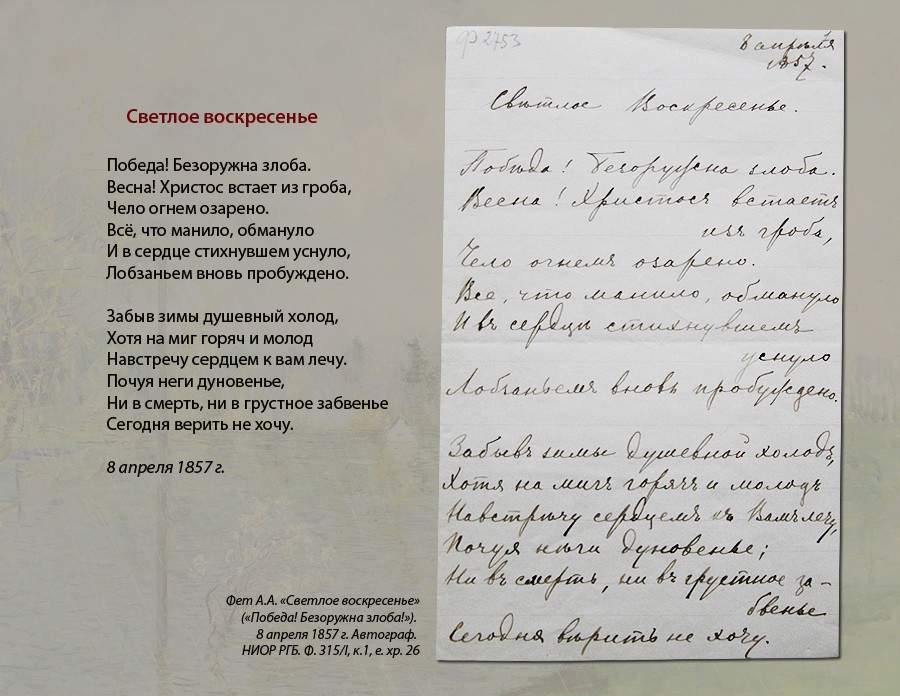 Светлое воскресенье
Победа! Безоружна злоба.
Весна! Христос встает из гроба,
Чело огнем озарено.
Всё, что манило, обмануло
И в сердце стихнувшем уснуло,
Лобзаньем вновь пробуждено.
Забыв зимы душевный холод,
Хотя на миг горяч и молод
Навстречу сердцем к вам лечу.
Почуя неги дуновенье,
Ни в смерть, ни в грустное забвенье
Сегодня верить не хочу.
8 апреля 1857 г.
Фет А.А. «Светлое воскресенье»
(«Победа! Безоружна злоба!»).
8 апреля 1857 г. Автограф.
НИОР РГБ. Ф. 315/I, к.1, е. хр. 26
ф 2753
8 апрѣля
1857.
Свѣтлое Воскресенье.
Побѣда! Безоружна злоба.
Весна! Христосъ встаетъ
изъ гроба,
Чело огнемъ озарено.
Все, что манило, обмануло
И въ сердцѣ стихнувшемъ
уснуло
Лобзаньемъ вновь пробуждено.
Забывъ зимы душевной холодъ,
Хотя на мигъ горячъ и молодъ
Навстрѣчу сердцемъ къ Вамъ лечу,
Почуя нѣги дуновенье;
Ни въ смерть, ни въ грустное за-
бвенье
Сегодня вѣрить не хочу.